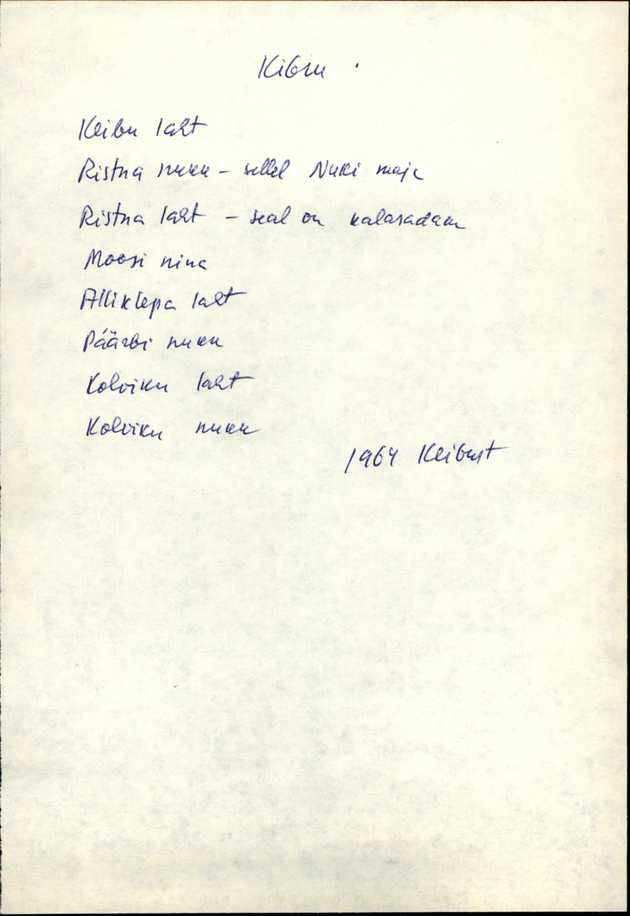 Kibru
Keibu laht
Ristna nukk - sellel Nuki maja
Ristna laht - seal on kalasadam
Moosi nina
Alliklepa laht
Päärbi nukk
Kolviku laht
Kolviku nukk
1964 Keibust